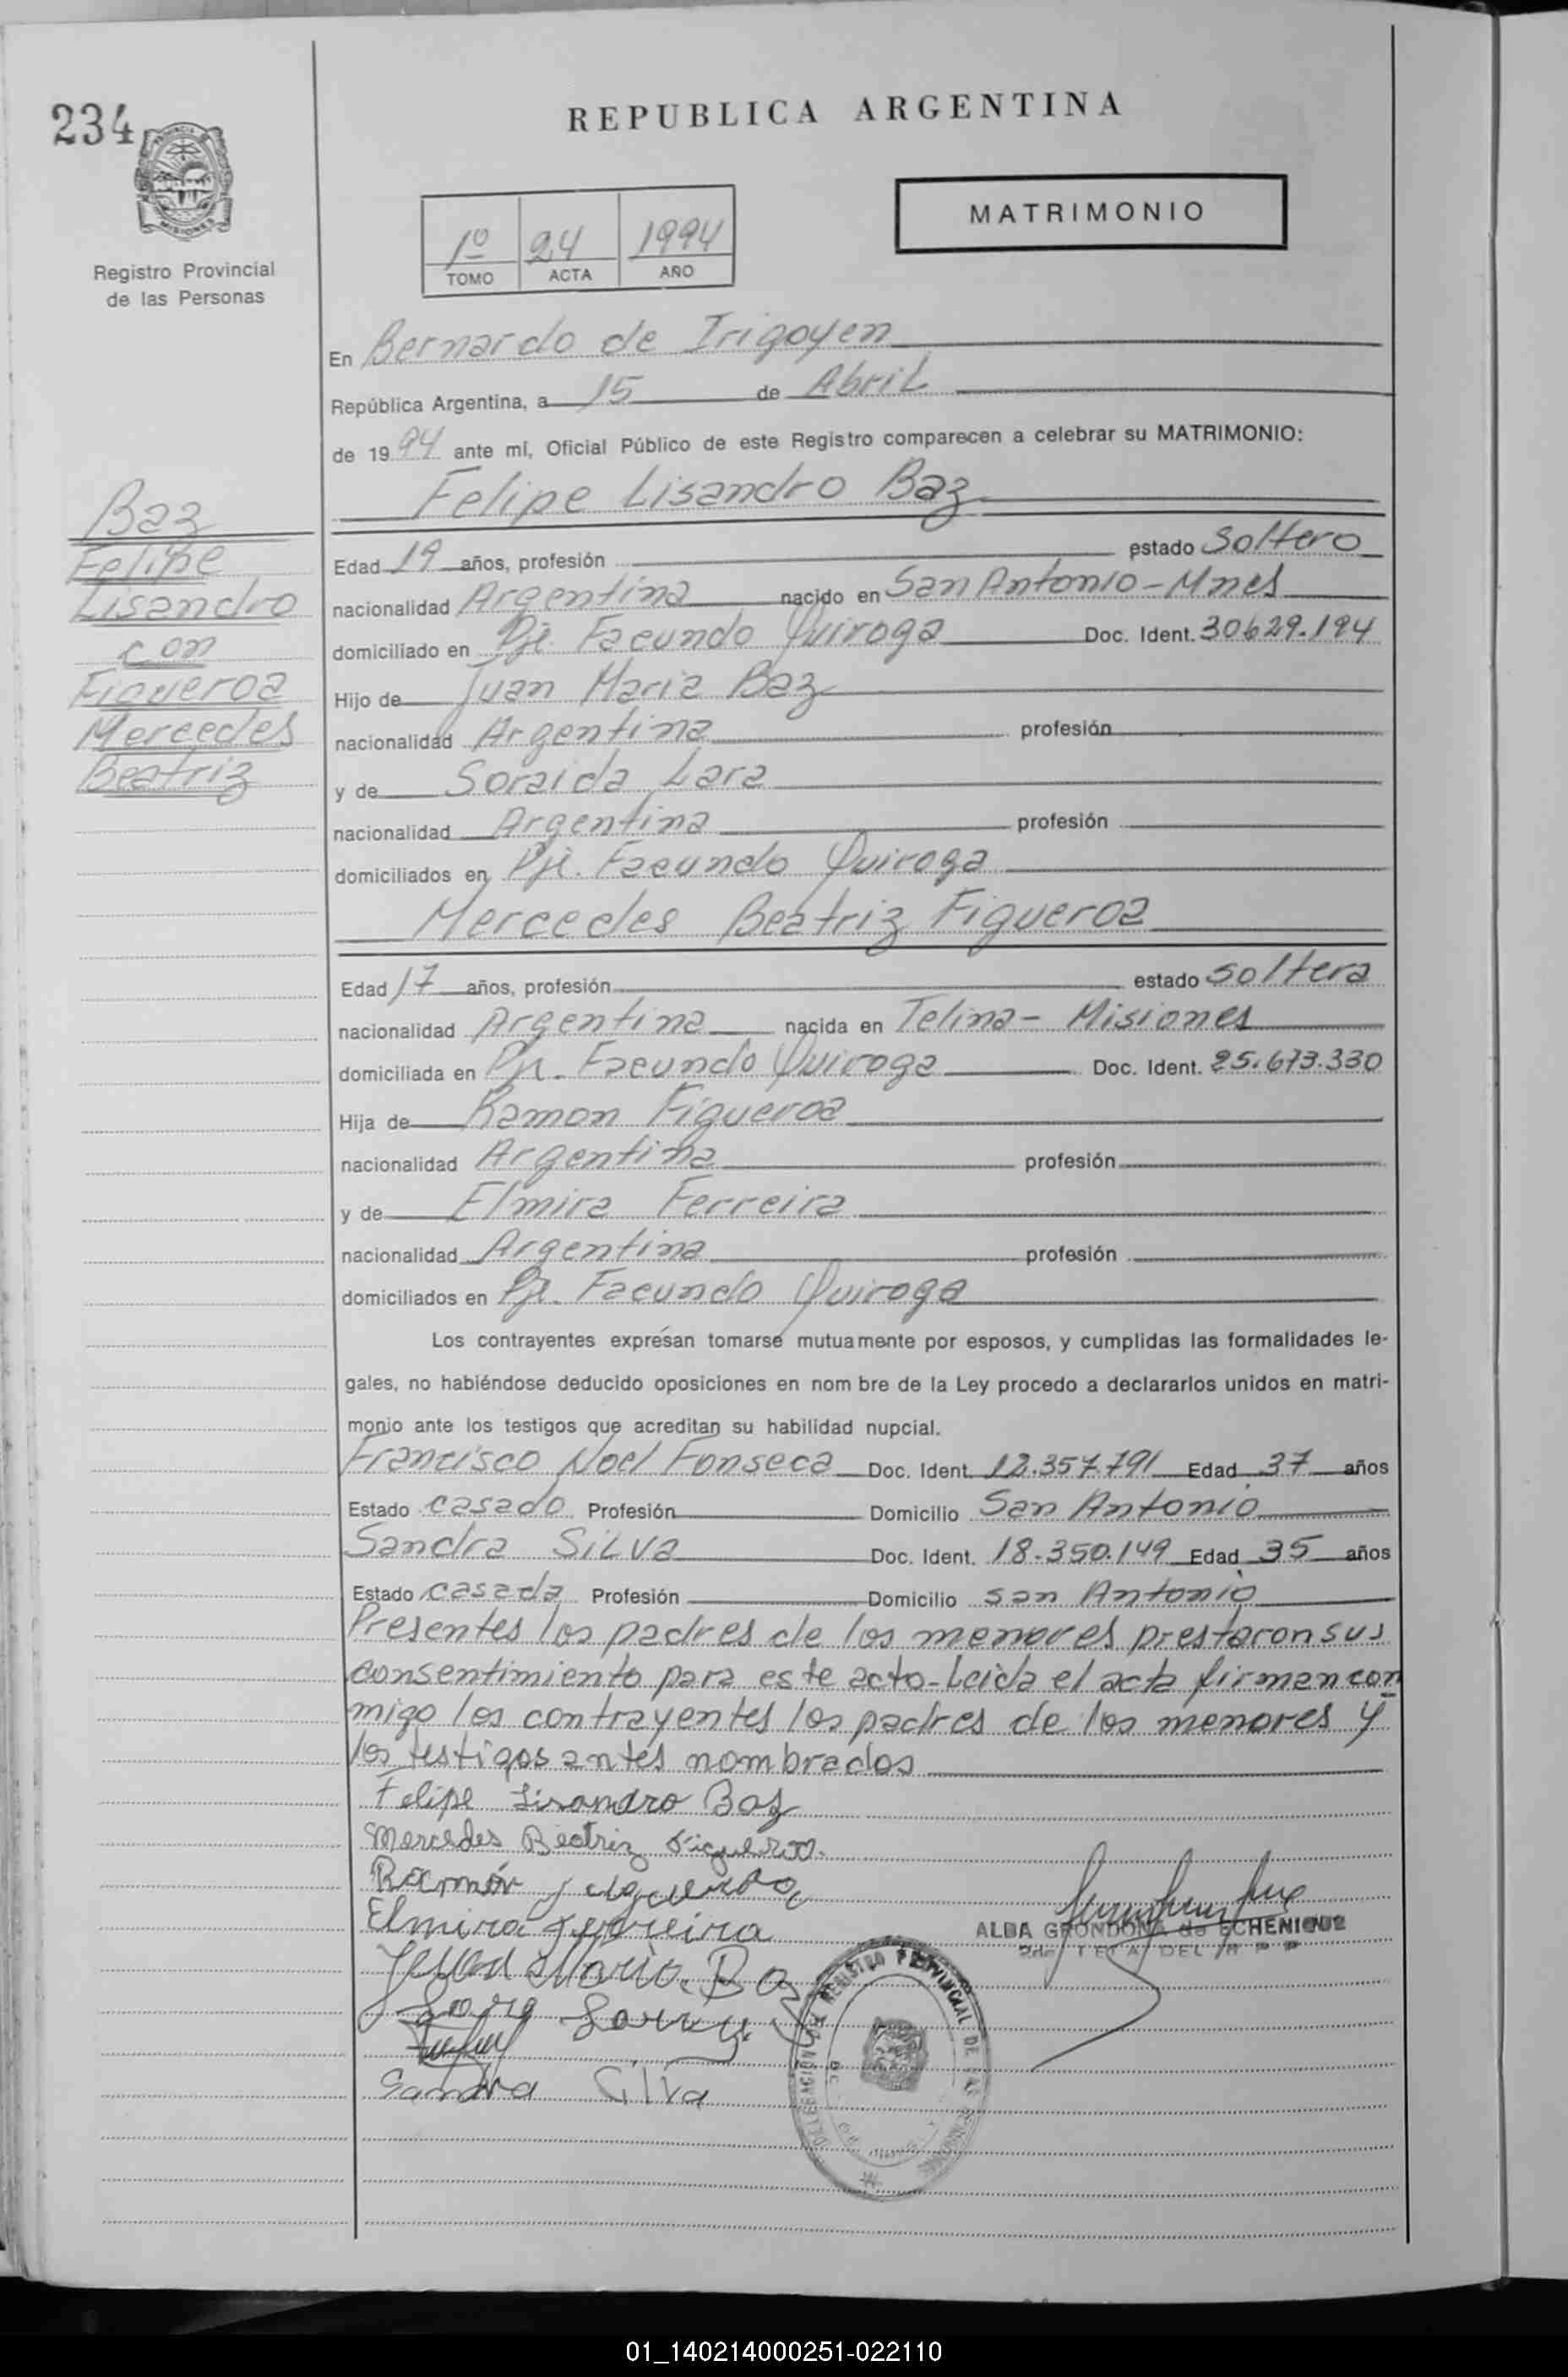 234
REPUBLICA ARGENTINA
MISIONES
Registro Provincial
de las Personas
1º 24 1994
TOMO ACTA AÑO
MATRIMONIO
En Bernardo de Irigoyen
República Argentina, a 15 de Abril
de 1994 ante mí, Oficial Público de este Registro comparecen a celebrar su MATRIMONIO:
Felipe Lisandro Baz
Baz
Felipe
Lisandro
con
Figueroa
Mercedes
Beatriz
Edad 19 años, profesión estado Soltero
nacionalidad Argentina nacido en San Antonio - Mnes
domiciliado en Pje Facundo Quiroga Doc. Ident. 30629.194
Hijo de Juan Maria Baz
nacionalidad Argentina profesión
y de Soraida Lara
nacionalidad Argentina profesión
domiciliados en Pje. Facundo Quiroga
Mercedes Beatriz Figueroa
Edad 17 años, profesión estado soltera
nacionalidad Argentina nacida en Telina - Misiones
domiciliada en Pje. Facundo Quiroga Doc. Ident. 25.673.330
Hija de Ramon Figueroa
nacionalidad Argentina profesión
y de Elmira Ferreira
nacionalidad Argentina profesión
domiciliados en Pje. Facundo Quiroga
Los contrayentes expresan tomarse mutuamente por esposos, y cumplidas las formalidades le-
gales, no habiéndose deducido oposiciones en nom bre de la Ley procedo a declararlos unidos en matri-
monio ante los testigos que acreditan su habilidad nupcial.
Francisco Noel Fonseca Doc. Ident. 12.357.791 Edad 37 años
Estado casado Profesión Domicilio San Antonio
Sandra Silva Doc. Ident. 18.350.149 Edad 35 años
Estado casada Profesión Domicilio san Antonio
Presentes los padres de los menores prestaron sus
consentimiento para este acto - Leida el acta firman con
migo los contrayentes los padres de los menores y
los testigos antes nombrados
Felipe Lisandro Baz
Mercedes Beatriz Figueroa.
Ramón
Elmira Ferreira
Maria Baz
ALBA GRONDONA de ECHENIQUE
DEL R P P
Sandra Silva
REGISTRO PROVINCIAL DE LAS PERSONAS
01_140214000251-022110